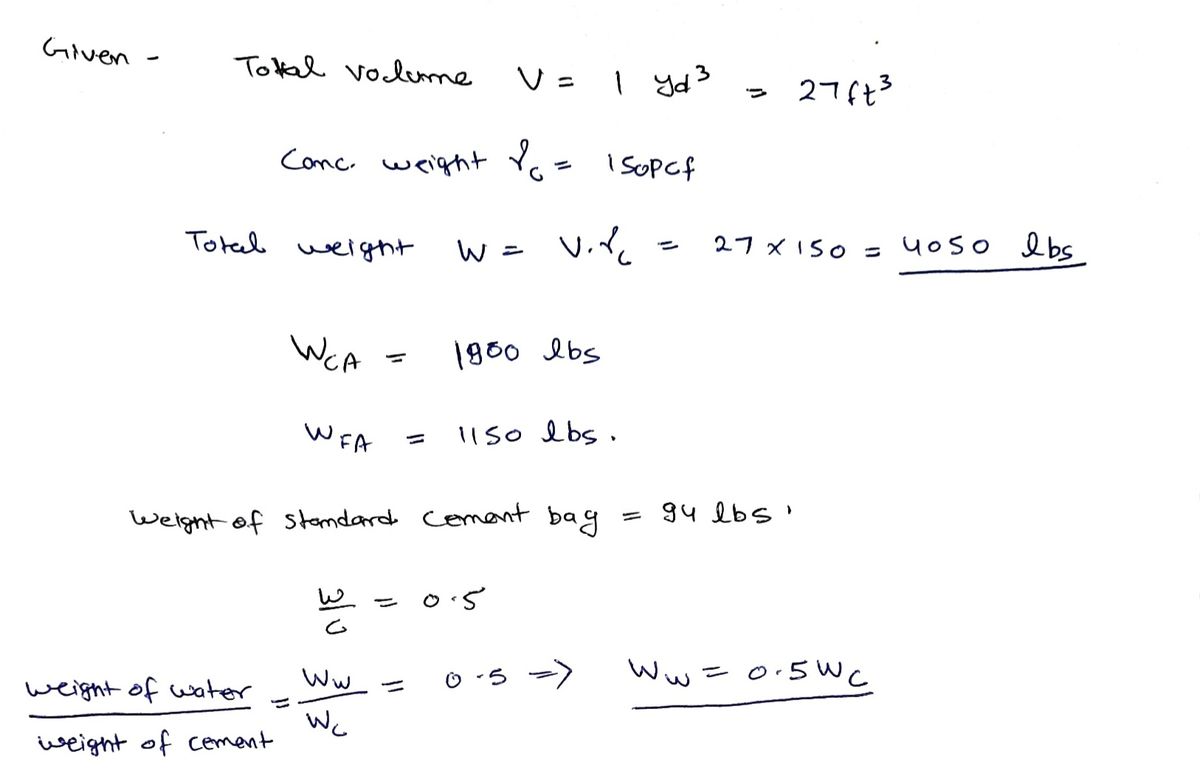 Given - Total volume V = 1 yd³ = 27ft³
Conc. weight γc = 150pcf
Total weight W = V.γc = 27 × 150 = 4050 lbs
WCA = 1900 lbs
WFA = 1150 lbs.
Weight of standard cement bag = 94 lbs.
W/C = 0.5
weight of water / weight of cement = Ww / Wc = 0.5 => Ww = 0.5 Wc